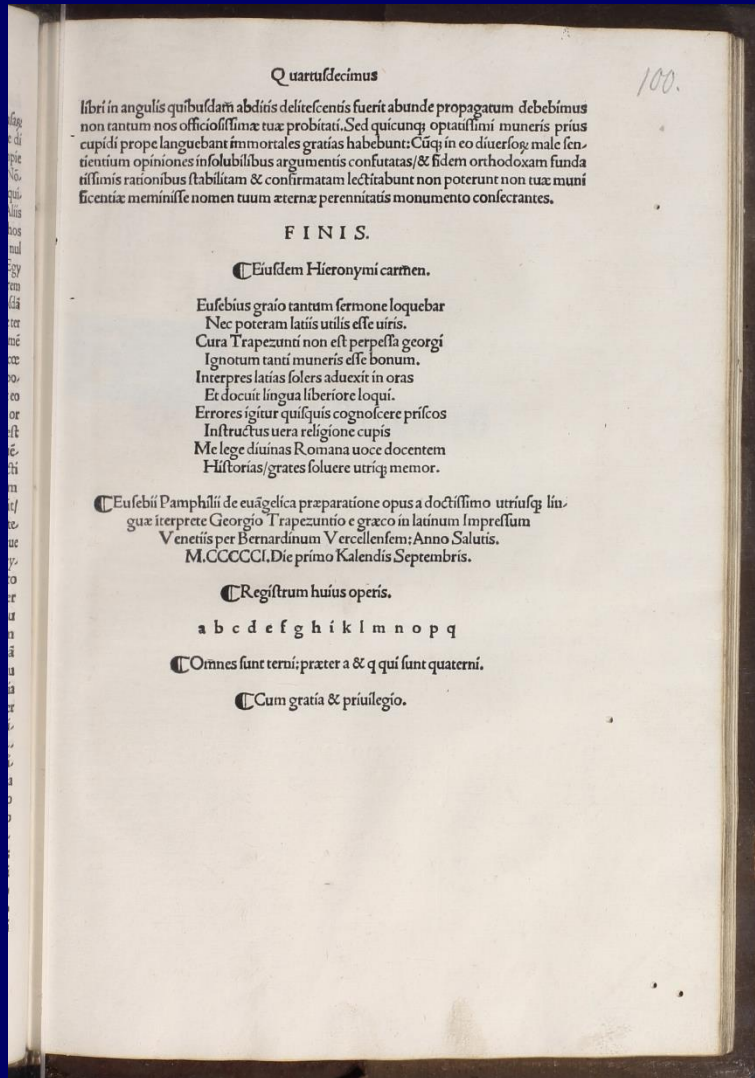 Quartusdecimus
100.
libri in angulis quibusdam̄ abditis delitescentis fuerit abunde propagatum debebimus
non tantum nos officiosissimæ tuæ probitati. Sed quicunq; optatissimi muneris prius
cupidi prope languebant immortales gratias habebunt: Cūq; in eo diuersoꝝ male sen-
tientium opiniones insolubilibus argumentis confutatas/& fidem orthodoxam funda
tissimis rationibus stabilitam & confirmatam lectitabunt non poterunt non tuæ muni
ficentiæ meminisse nomen tuum æternæ perennitatis monumento consecrantes.
FINIS.
⁋Eiusdem Hieronymi carm̄en.
Eusebius graio tantum sermone loquebar
Nec poteram latiis utilis esse uiris.
Cura Trapezunti non est perpessa georgi
Ignotum tanti muneris esse bonum.
Interpres latias solers aduexit in oras
Et docuit lingua liberiore loqui.
Errores igitur quisquis cognoscere priscos
Instructus uera religione cupis
Me lege diuinas Romana uoce docentem
Historias/grates soluere utriq; memor.
⁋Eusebii Pamphilii de euāgelica præparatione opus a doctissimo utriusq; lin-
guæ īterprete Georgio Trapezuntio e græco in latinum Impressum
Venetiis per Bernardinum Vercellensem: Anno Salutis.
M.CCCCCI. Die primo Kalendis Septembris.
⁋Registrum huius operis.
a b c d e f g h i k l m n o p q
⁋Om̄nes sunt terni: præter a & q qui sunt quaterni.
⁋Cum gratia & priuilegio.